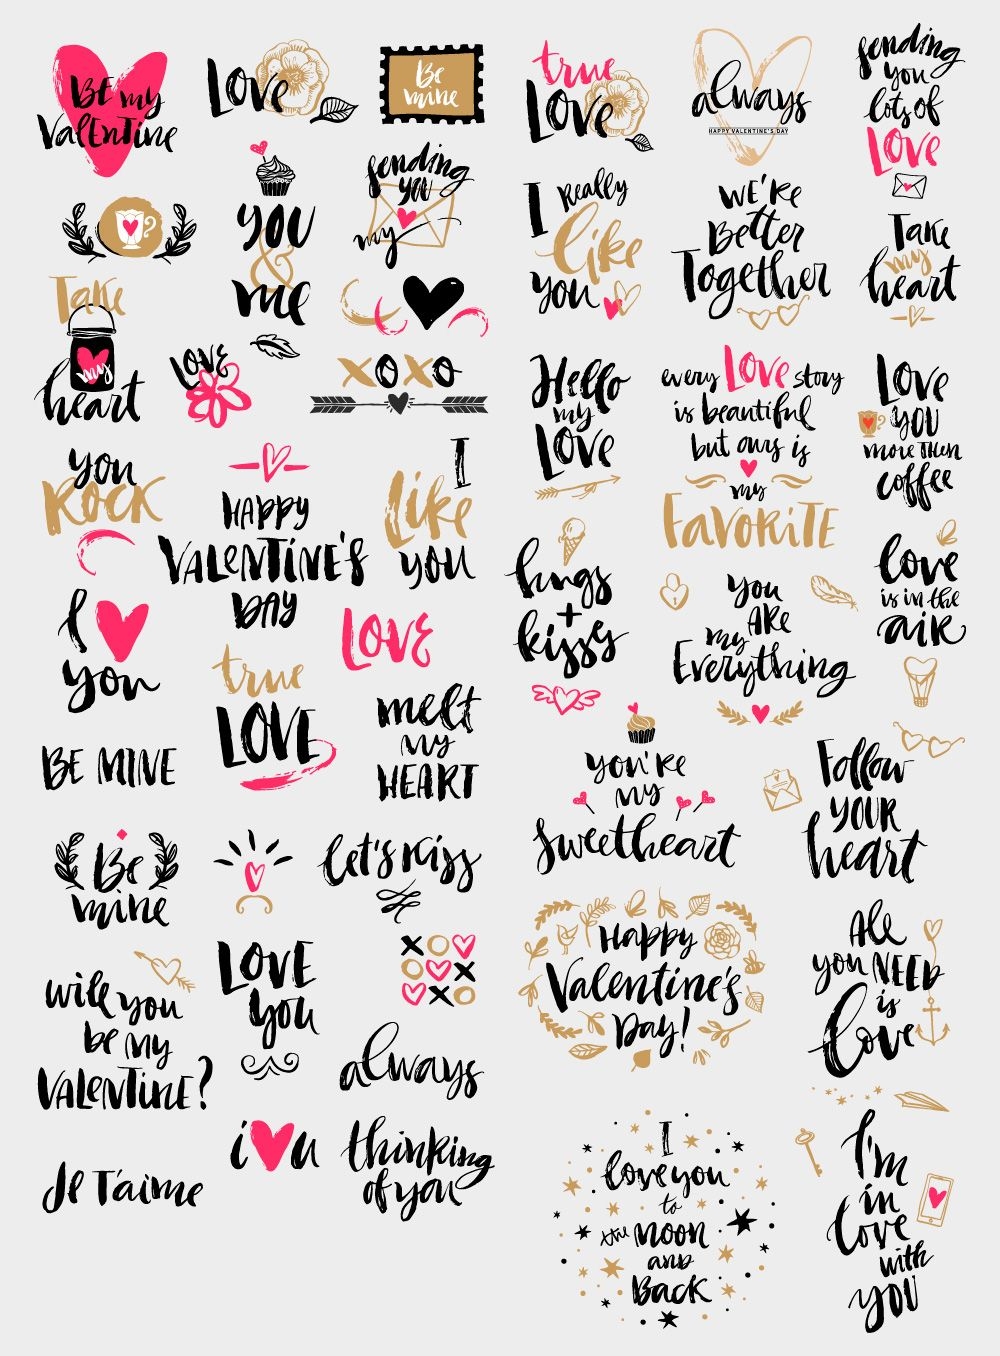 Be my
Valentine
Love
Be
mine
sending
you
my
you
&
me
Take
my
heart
Love
XOXO
you
Rock
Happy
Valentine's
Day
I
Like
you
I
you
Love
true
Love
melt
my
Heart
Be Mine
Be
mine
let's kiss
Love
you
XO
OX
XO
will you
be my
Valentine?
always
i u
thinking
of you
Je T'aime
true
Love
always
HAPPY VALENTINE'S DAY
sending
you
lots of
Love
I Really
like
you
We're
Better
Together
Take
my
heart
Hello
my
Love
every Love story
is beautiful
but ours is
my
Favorite
Love
you
more then
coffee
hugs
+
kissy
you
are
my
Everything
love
is in the
air
you're
my
Sweetheart
Follow
your
heart
Happy
Valentine's
Day!
All
you need
is
Love
I
love you
to
the moon
and
Back
I'm
in
Love
with
you